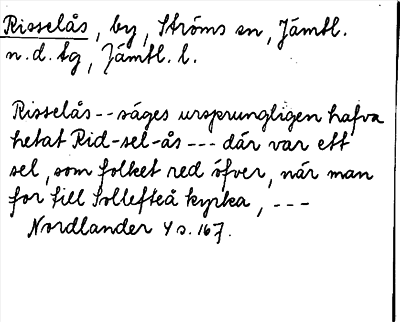 Risselås, by, Ströms sn, Jämtl.
n.d. tg, Jämtl. l.
Risselås -- säges ursprungligen hafva
hetat Rid-sel-ås --- där var ett
sel, som folket red öfver, när man
for till Sollefteå kyrka, ---
Nordlander 4 s. 167.